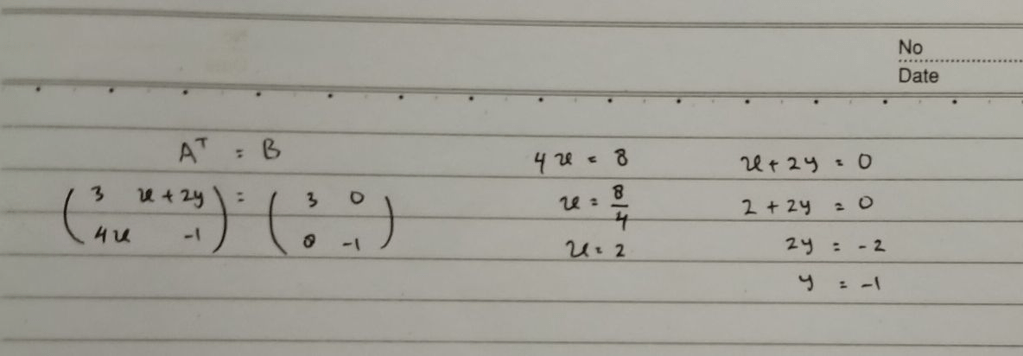 No
Date
A^T = B
( 3 x+2y ) = ( 3 0 )
( 4x -1 ) ( 8 -1 )
4x = 8
x = 8/4
x = 2
x + 2y = 0
2 + 2y = 0
2y = -2
y = -1